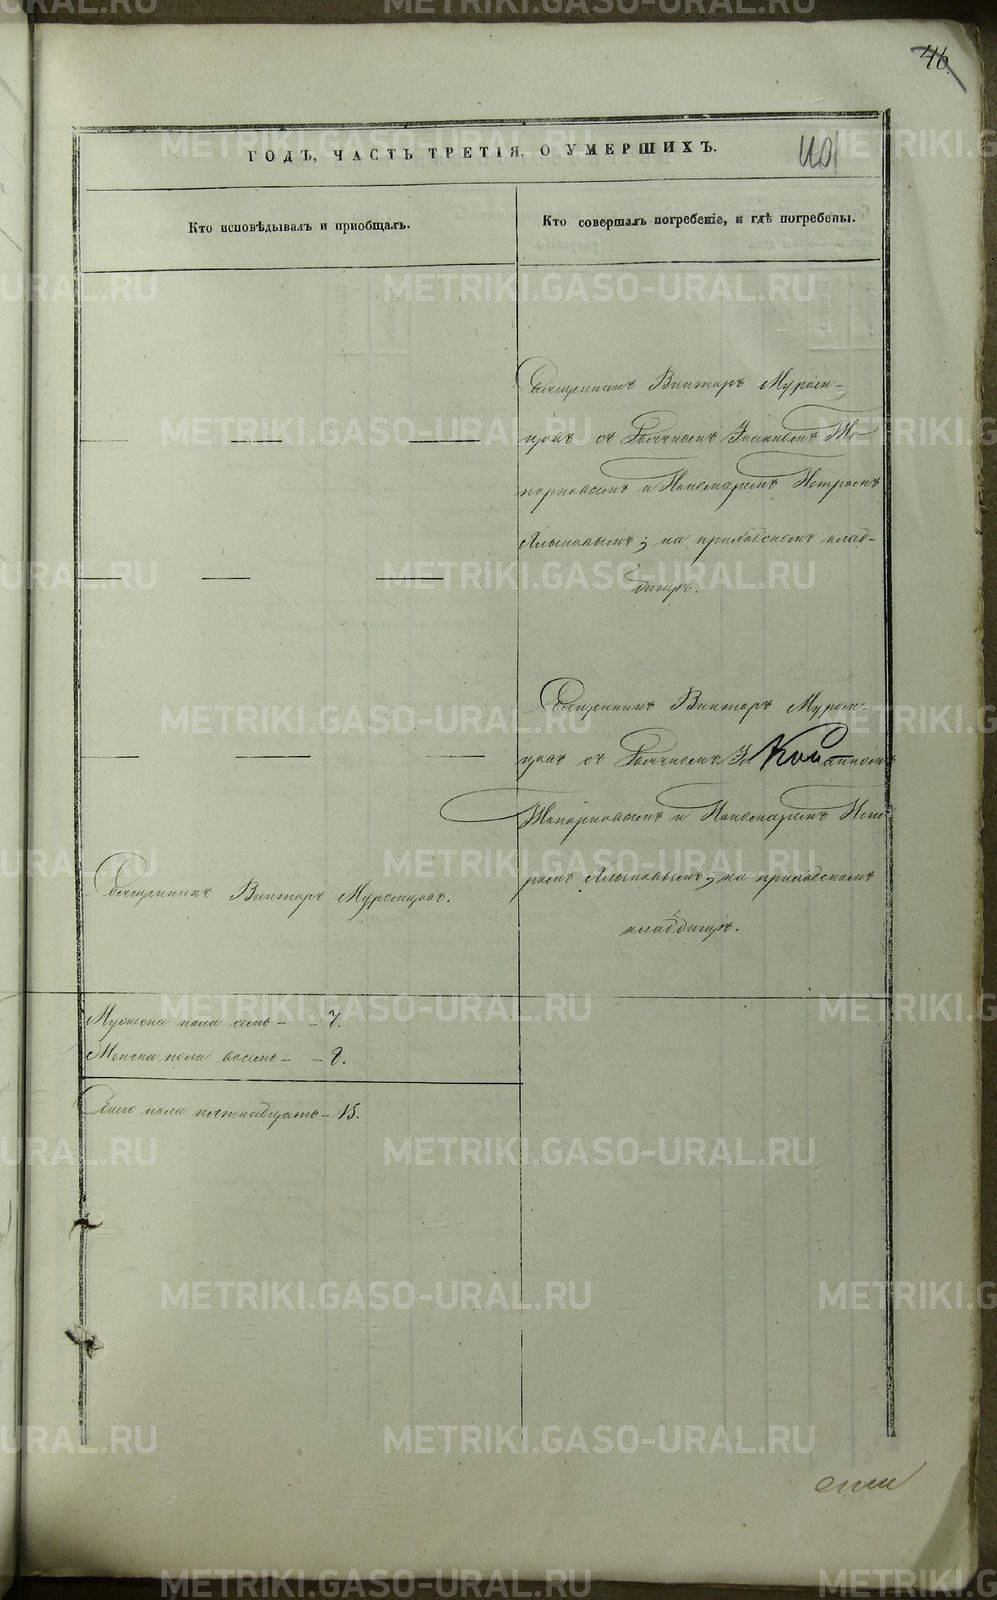 46.
ГОДЪ, ЧАСТЬ ТРЕТІЯ, О УМЕРШИХЪ.
Кто исповѣдывалъ и приобщалъ.
Кто совершалъ погребеніе, и гдѣ погребены.
Священникъ Викторъ Муром-
цовъ съ Дьячкомъ Іоанномъ То-
порковымъ и Пономаремъ Петромъ
на приходскомъ клад-
бищѣ.
Священникъ Викторъ Муром-
цовъ съ Дьячкомъ Іо анномъ
Топорковымъ и Пономаремъ Пет-
ромъ на приходскомъ
кладбищѣ.
Священникъ Викторъ Муромцовъ.
Мужеска пола семь - - 7.
Женска пола восемь - - 8.
Обоего пола пятнадцать - 15.
METRIKI.GASO-URAL.RU